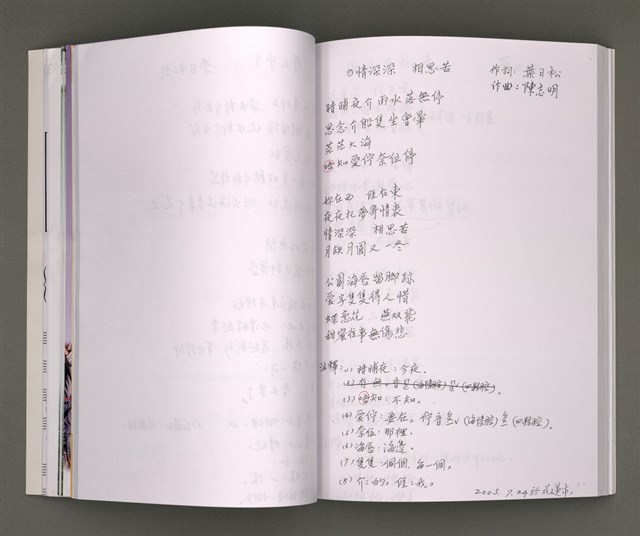 ◎情深深 相思苦
作詞:葉日松
作曲:陳志明
暗晡夜介雨水落無停
思念介船隻坐會暈
茫茫大海
唔知愛佇奈位停
妳在西 𠊎在東
夜夜托夢寄情衷
情深深 相思苦
月缺月圓又一冬
公園海唇留腳跡
愛字隻隻得人惜
蝶戀花 燕双飛
甜蜜往事無傷悲
注釋:(1)暗晡夜:今夜。
(3)唔知:不知。
(4)愛佇:要在。佇音 (海陸腔) (四縣腔)。
(5)奈位:那裡。
(6)海唇:海邊。
(7)隻隻:個個,每一個。
(8)介:的。𠊎:我。
2005.7.24於花蓮市。